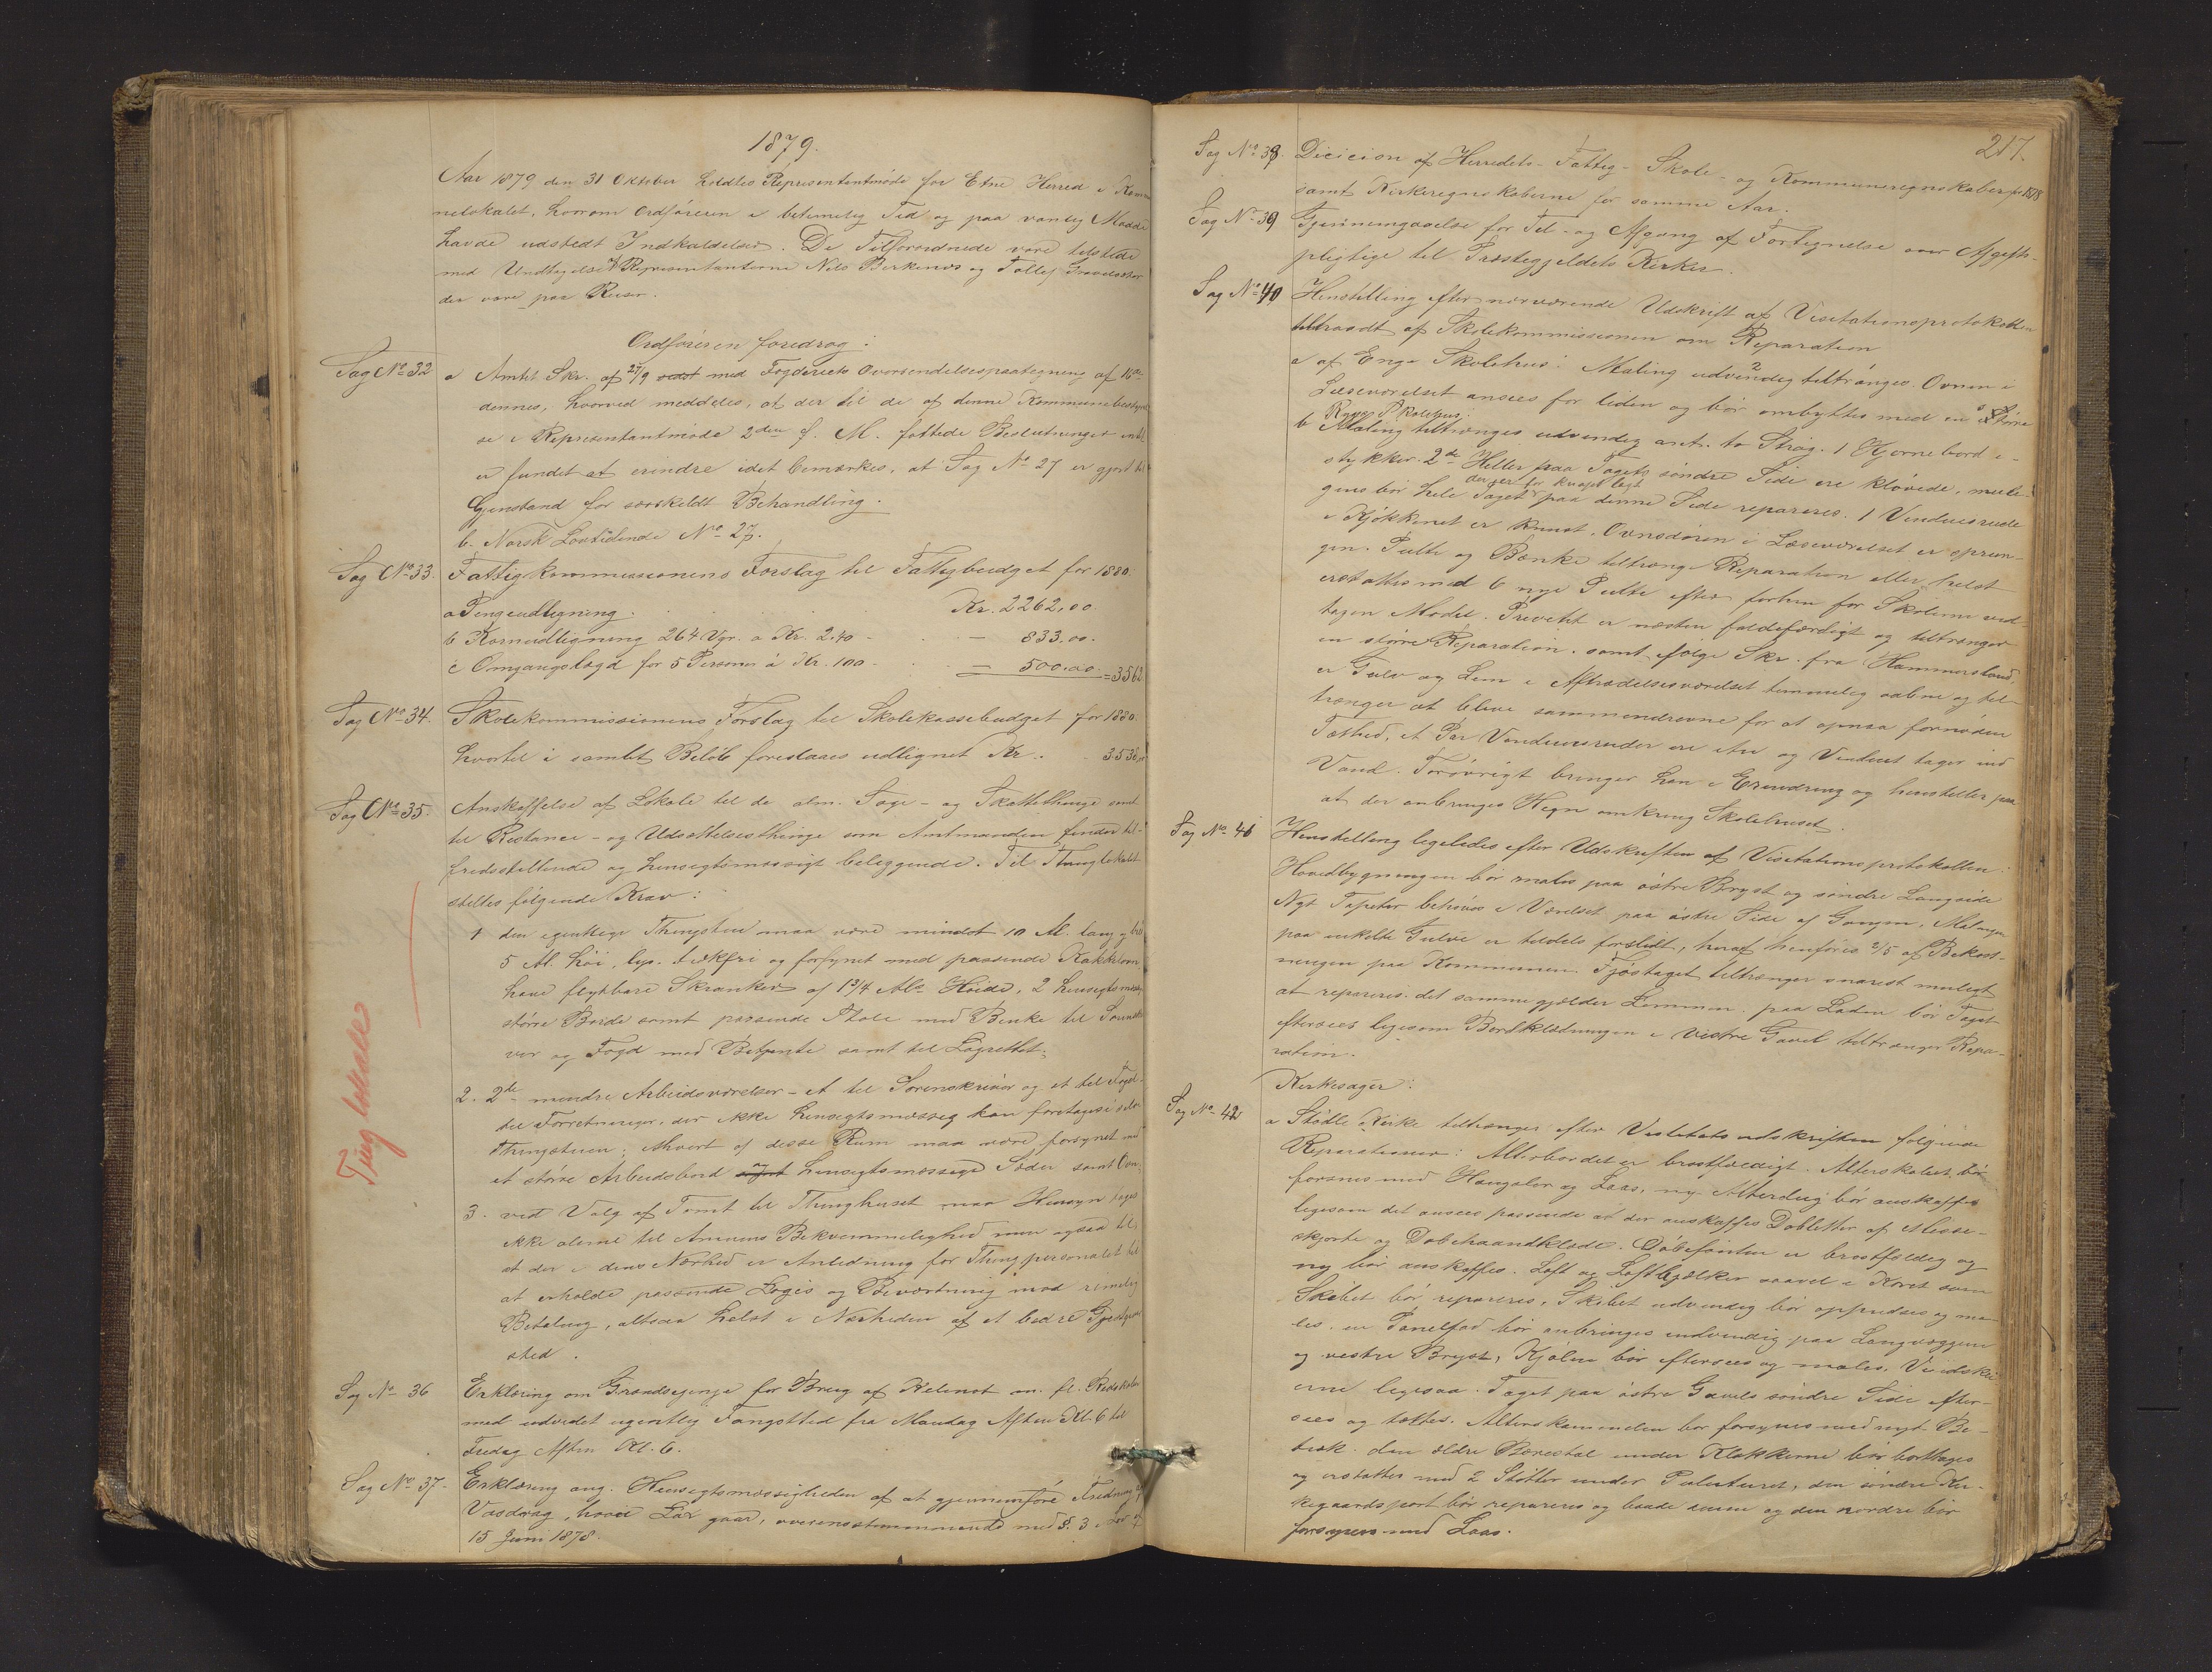 1879.
Aar 1879 den 31 Oktober holdtes Representantmöde for Etne Herred i Kom
nelokalet, hvorom Ordföreren i betimelig Tid og paa vanlig Maade
havde udstedt Indkaldelser. De Tilforordnede vare tilstede
med Undtagelse af Representanterne Nils Berkenes og Tollef
der vare paa Reiser.
Ordföreren foredrog:
Sag No 32 a Amtets Skr. af 27/9 sidst med Fogderiets Oversendelsespaategning af 16de
dennes, hvorved meddeles, at der til de af denne Kommunebesty
se i Representantmöde 2den f. M. fattede Beslutninger intet
er fundet at erindre idet bemærkes, at Sag No 27 er gjort til
Gjenstand for særskildt Behandling.
b. Norsk Lovtidende No 27.
Sag No 33. Fattigkommissionens Forslag til Fattigbudget for 1880.
a Pengeudligning. Kr. 2262,00.
b Kornudligning 264 Vgr. a Kr. 2,40 - — 833,00.
c Omgangslægd for 5 Personer à Kr. 100 - — 500.00 = 3562
Sag No 34. Skolekommissionens Forslag til Skolekassebudget for 1880.
hvortil i samlet Beløb foreslaaes udlignet Kr. 3538,00
Sag No 35. Anskaffelse af Lokale til de alm. Sage- og Skattethinge samt
til Restance- og Udsættelsesthinge som Amtmanden finder til-
fredsstillende og hensigtsmæssigt beliggende. Til Thinglokalet
stilles følgende Krav:
1 den egentlige Thingstue maa være mindst 10 Al. lang og
5 Al. höi, lys, trækfri og forsynet med passende Kakkelovn
have flytbare Skranker af 1 3/4 Als Höide, 2 hensigtsmæss
större Borde samt passende Stole med Benke til Sorenskri
ver og Fogd med Betjente samt til Lagrettet.
2. 2de mindre Arbeidsværelser - et til Sorenskriver og et til Foged
til Forretninger, der ikke hensigtsmæssig kan foretages i selve
Thingstuen; ethvert af disse Rum maa være forsynet med
et större Arbeidsbord og hensigtsmæssige Sæder samt Ovn.
3. ved Valg af Tomt til Thinghuset maa Hensyn tages
ikke alene til Almuens Bekvemmelighed men ogsaa til
at der i dens Nærhed er Anledning for Thingpersonalet til
at erholde passende Logis og Bevertning mod rimelig
Betaling, altsaa helst i Nærheden af et bedre Gjestgiver
sted.
Ting lokaler
Sag No 36 Erklæring om Grændsegang for Brug af Kilenot m. fl. Redskaber
med udvidet ugentlig Fangsttid fra Mandag Aften Kl. 6 til
Fredag Aften Kl. 6.
Sag No 37. Erklæring ang. Hensigtsmæssigheden af at gjennemföre Fredning af
Vasdrag, hvori Lax gaar, overensstemmende med §. 3 i Lov af
15 Juni 1878.
217.
Sag No 38. Dicicion af Herredets- Fattig- Skole- og Kommuneregnskaber for 1878
samt Kirkeregnskaberne for samme Aar.
Sag No 39 Gjennemgaaelse for Til- og Afgang af Fortegnelse over Afgifts-
pligtige til Præstegjeldets Kirker.
Sag No 40 Henstilling efter nærværende Udskrift af Visitationsprotokollen
tiltraadt af Skolekommissionen om Reparation
a af Enge Skolehus: Maling udvendig tiltrænges. Ovnen i
Læseværelset ansees for liden og bör ombyttes med en större
Ryges Skolehus:
b Maling tiltrænges udvendig ant. to Strög. 1 Hjørnebord i-
stykker. 2de Heller paa Tagets söndre Side ere klövede, mulig
gens bör hele Taget der er for knapt lagt paa denne Side repareres. 1 Vinduesrude
i Kjökkenet er knust. Ovnsdören i Læseværelset er sprun-
gen. Pulte og Bænke tiltrænge Reparation eller helst
erstattes med 6 nye Pulte efter forhen for Skolerne ved-
tagen Model. Privetet er næsten faldefærdigt og tiltrænger
en större Reparation. samt ifölge Skr. fra Hammersland
er Gulv og Lem i Aftrædelsesværelset temmelig aabne og til-
trænger at blive sammendrevne for at opnaa fornöden
Tæthed, et Par Vinduesruder ere itu og Vinduet tager ind
Vand. Forövrigt bringer han i Erindring og henstiller paa
at der anbringes Hegn omkring Skolehuset.
Sag No 41 Henstilling ligeledes efter Udskriften af Visitationsprotokollen:
Hovedbygningen bör males paa östre Bryst og söndre Langside
Nyt Tapeter behöves i Værelset paa östre Side af Gangen, Malingen
paa enkelte Gulve er tildels forslidt, heraf henföres 2/5 af Bekost-
ningen paa Kommunen. Fjöstaget tiltrænger snarest muligt
at repareres. det samme gjælder Lemmen. paa Laden bör Taget
eftersees ligesom Bordklædningen i vestre Gavel tiltrænger Repa-
ration.
Kirkesager:
Sag No 42 a Stödle Kirke tiltrænger efter Visitatsudskriften fölgende
Reparationer: Alterbordet er bröstfældigt. Alterskabet bör
forsynes med Hængsler og Laas, ny Alterdug bör anskaffes
ligesom det ansees passende at der anskaffes Dobletter af Messe-
skjorte og Dobehaandklæde. Döbefonten er bröstfældig og
ny bör anskaffes. Loft og Loftbjælker saavel i Koret som
Skibet bör repareres, Skibet udvendig bör oppudses og ma-
les. en Panelfod bör anbringes indvendig paa Langvæggene
og vestre Bryst, Kjölen bör eftersees og males. Vindski
erne ligesaa. Taget paa östre Gavels söndre Side efter-
sees og tættes. Alterskammelen bör forsynes med nyt Be-
træk. den ældre Bærestol under Klokkerne bör borttages
og erstattes med 2 Stötter under Pulpituret, den söndre Kir-
kegaardsport bör repareres og baade denne og den nordre bör
forsynes med Laas.